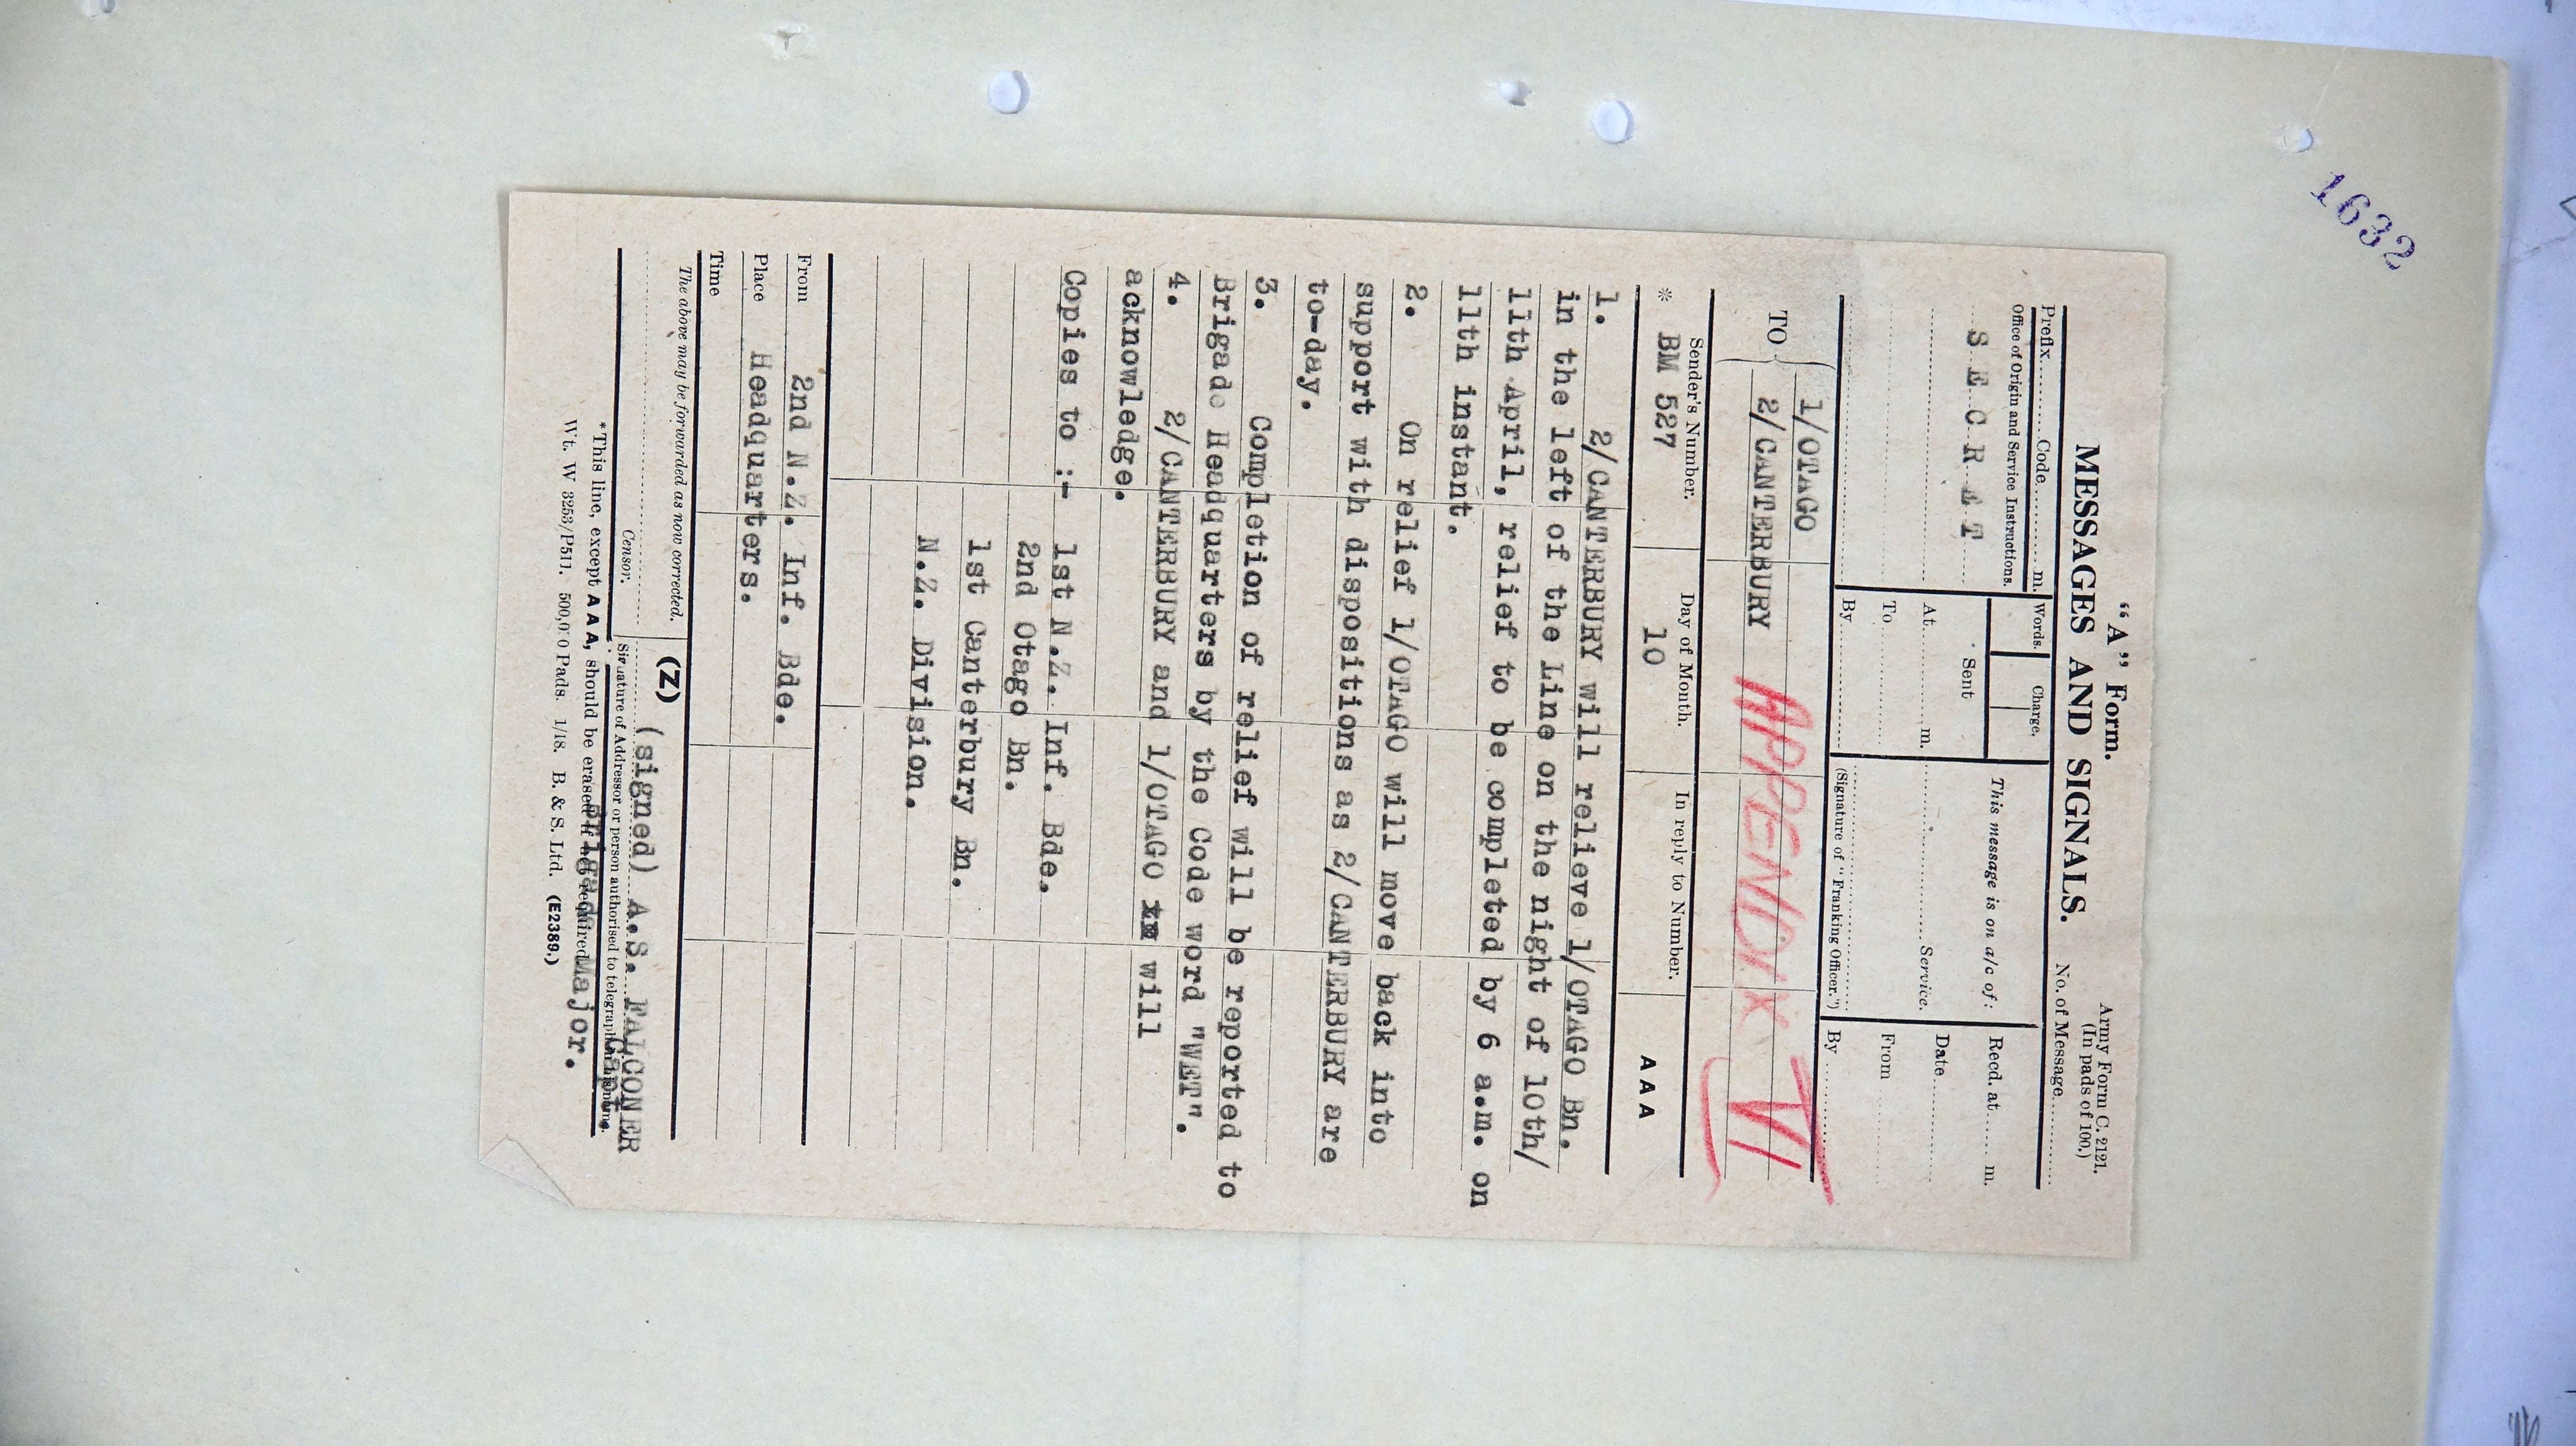 1632
"A" Form.
MESSAGES AND SIGNALS.
Army Form C. 2121.
(In pads of 100.)
No. of Message..........
Prefix.........Code.........m.
Words.
Charge.
Office of Origin and Service Instructions.
S E C R E T
Sent
At..........m.
To..........
By..........
This message is on a/c of:
..........Service.
(Signature of "Franking Officer.")
Recd. at......m.
Date..........
From..........
By..........
TO
1/OTAGO
2/CANTERBURY
APPENDIX VI
Sender's Number.
Day of Month.
In reply to Number.
AAA
* BM 527
10
1. 2/CANTERBURY will relieve 1/OTAGO Bn.
in the left of the Line on the night of 10th/
11th April, relief to be completed by 6 a.m. on
11th instant.
2. On relief 1/OTAGO will move back into
support with dispositions as 2/CANTERBURY are
to-day.
3. Completion of relief will be reported to
Brigade Headquarters by the Code word "WET".
4. 2/CANTERBURY and 1/OTAGO will
acknowledge.
Copies to :- 1st N.Z. Inf. Bde.
2nd Otago Bn.
1st Canterbury Bn.
N.Z. Division.
From 2nd N.Z. Inf. Bde.
Place Headquarters.
Time
The above may be forwarded as now corrected.
(Z)
(signed) A.S. FALCONER
Capt.
Censor.
Signature of Addressor or person authorised to telegraph in his name.
Brigade Major.
*This line, except AAA, should be erased if not required.
Wt. W 3253/P511. 500,000 Pads. 1/18. B. & S. Ltd. (E2389.)